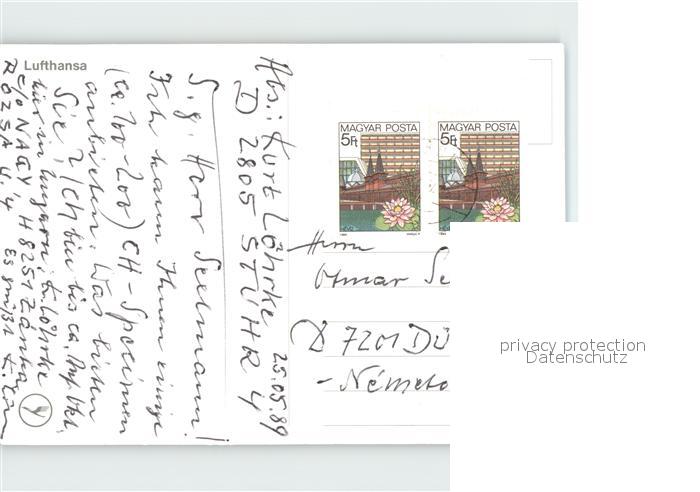 Lufthansa
Abs.: Kurt Löhrke 25.05.89
D 2805 STUHR 4
S. g. Herr Seelmann!
Ich kann Ihnen einige
(ca. 100-200) CH-Specimen
anbieten. Was bieten
Sie? Ich bin bis ca.
hier in Ungarn: K. Löhrke
c/o NAGY, H 8251 Zánka
RÓZSA U. 4 Es grüßt
MAGYAR POSTA
5Ft
MAGYAR POSTA
5Ft
Herrn
Otmar Se
D 7201 DÜ
- Németo
privacy protection
Datenschutz